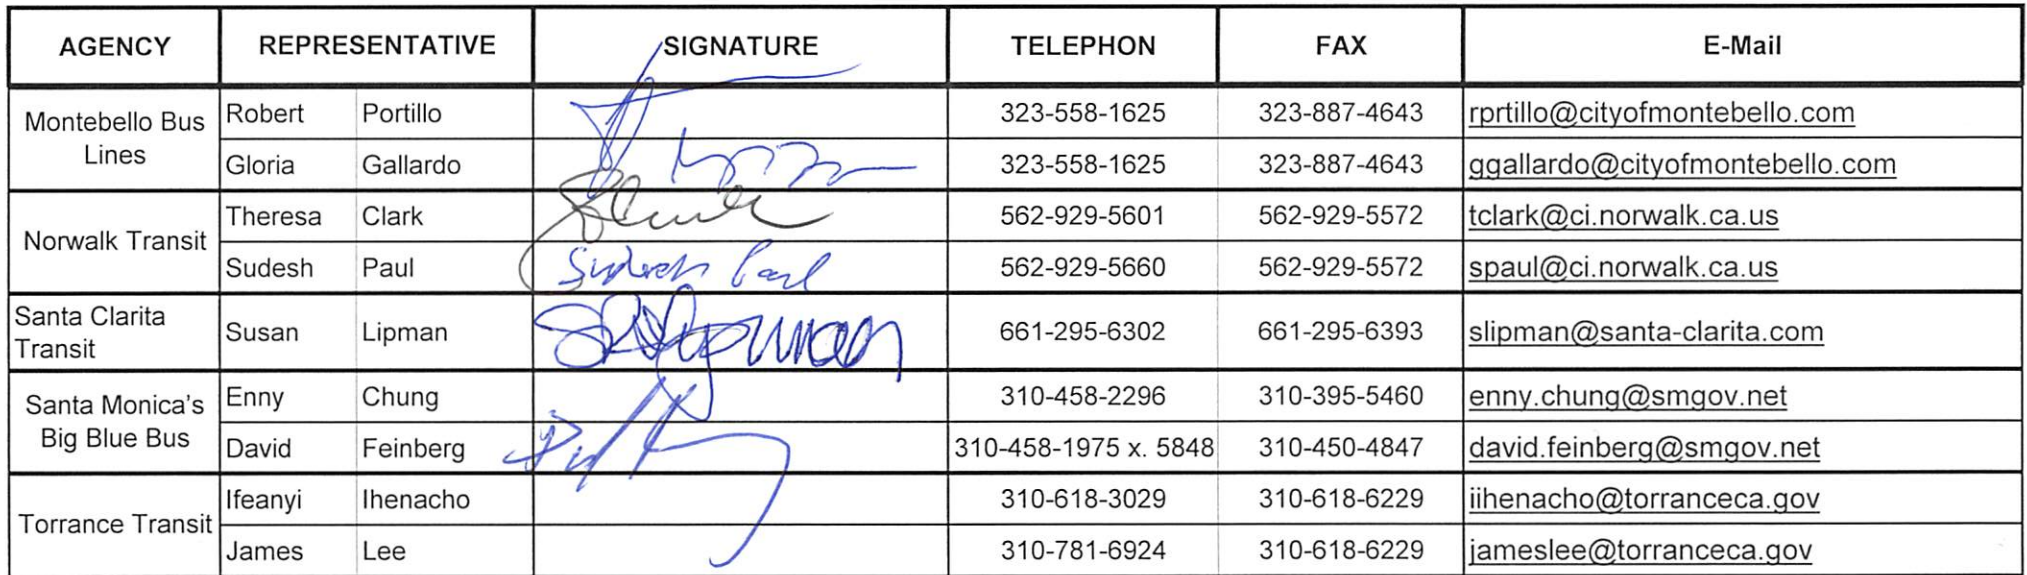 AGENCY REPRESENTATIVE SIGNATURE TELEPHON FAX E-Mail
Montebello Bus Lines
Robert Portillo 323-558-1625 323-887-4643 rprtillo@cityofmontebello.com
Gloria Gallardo 323-558-1625 323-887-4643 ggallardo@cityofmontebello.com
Norwalk Transit
Theresa Clark 562-929-5601 562-929-5572 tclark@ci.norwalk.ca.us
Sudesh Paul Sudesh Paul 562-929-5660 562-929-5572 spaul@ci.norwalk.ca.us
Santa Clarita Transit
Susan Lipman 661-295-6302 661-295-6393 slipman@santa-clarita.com
Santa Monica's Big Blue Bus
Enny Chung 310-458-2296 310-395-5460 enny.chung@smgov.net
David Feinberg 310-458-1975 x. 5848 310-450-4847 david.feinberg@smgov.net
Torrance Transit
Ifeanyi Ihenacho 310-618-3029 310-618-6229 iihenacho@torranceca.gov
James Lee 310-781-6924 310-618-6229 jameslee@torranceca.gov